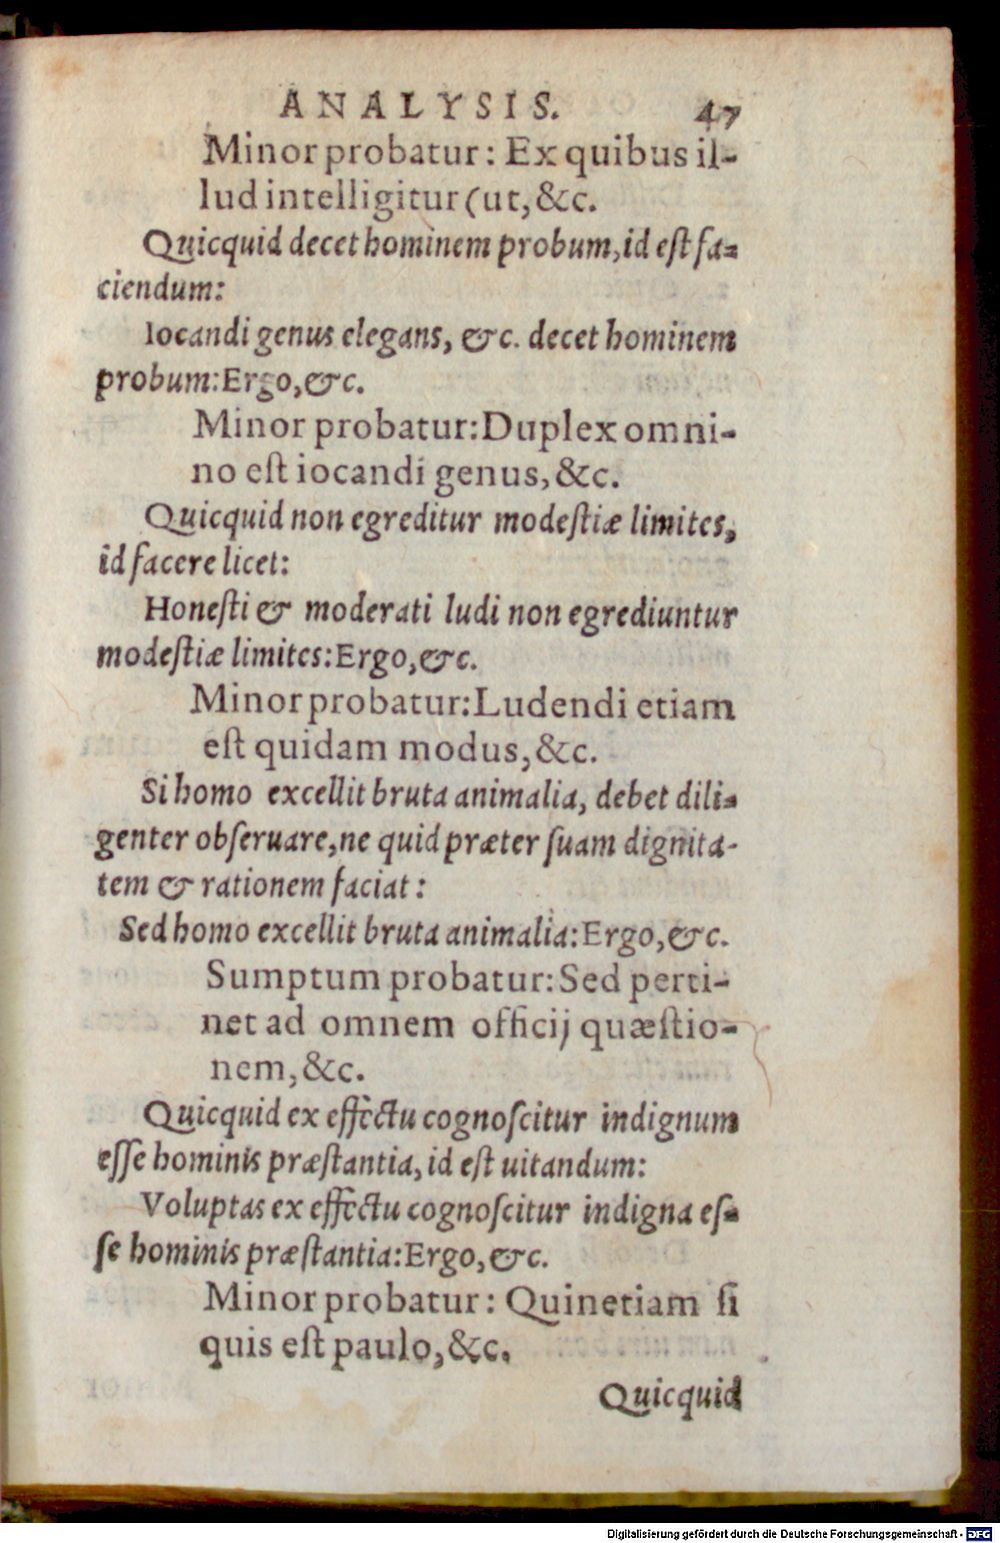 ANALYSIS. 47
Minor probatur: Ex quibus il-
lud intelligitur (ut, &c.
Quicquid decet hominem probum, id est fa-
ciendum:
Iocandi genus elegans, &c. decet hominem
probum: Ergo, &c.
Minor probatur: Duplex omni-
no est iocandi genus, &c.
Quicquid non egreditur modestiæ limites,
id facere licet:
Honesti & moderati ludi non egrediuntur
modestiæ limites: Ergo, &c.
Minor probatur: Ludendi etiam
est quidam modus, &c.
Si homo excellit bruta animalia, debet dili-
genter obseruare, ne quid præter suam dignita-
tem & rationem faciat:
Sed homo excellit bruta animalia: Ergo, &c.
Sumptum probatur: Sed perti-
net ad omnem officij quæstio-
nem, &c.
Quicquid ex effectu cognoscitur indignum
esse hominis præstantia, id est uitandum:
Voluptas ex effectu cognoscitur indigna es-
se hominis præstantia: Ergo, &c.
Minor probatur: Quinetiam si
quis est paulo, &c.
Quicquid
Digitalisierung gefördert durch die Deutsche Forschungsgemeinschaft - DFG